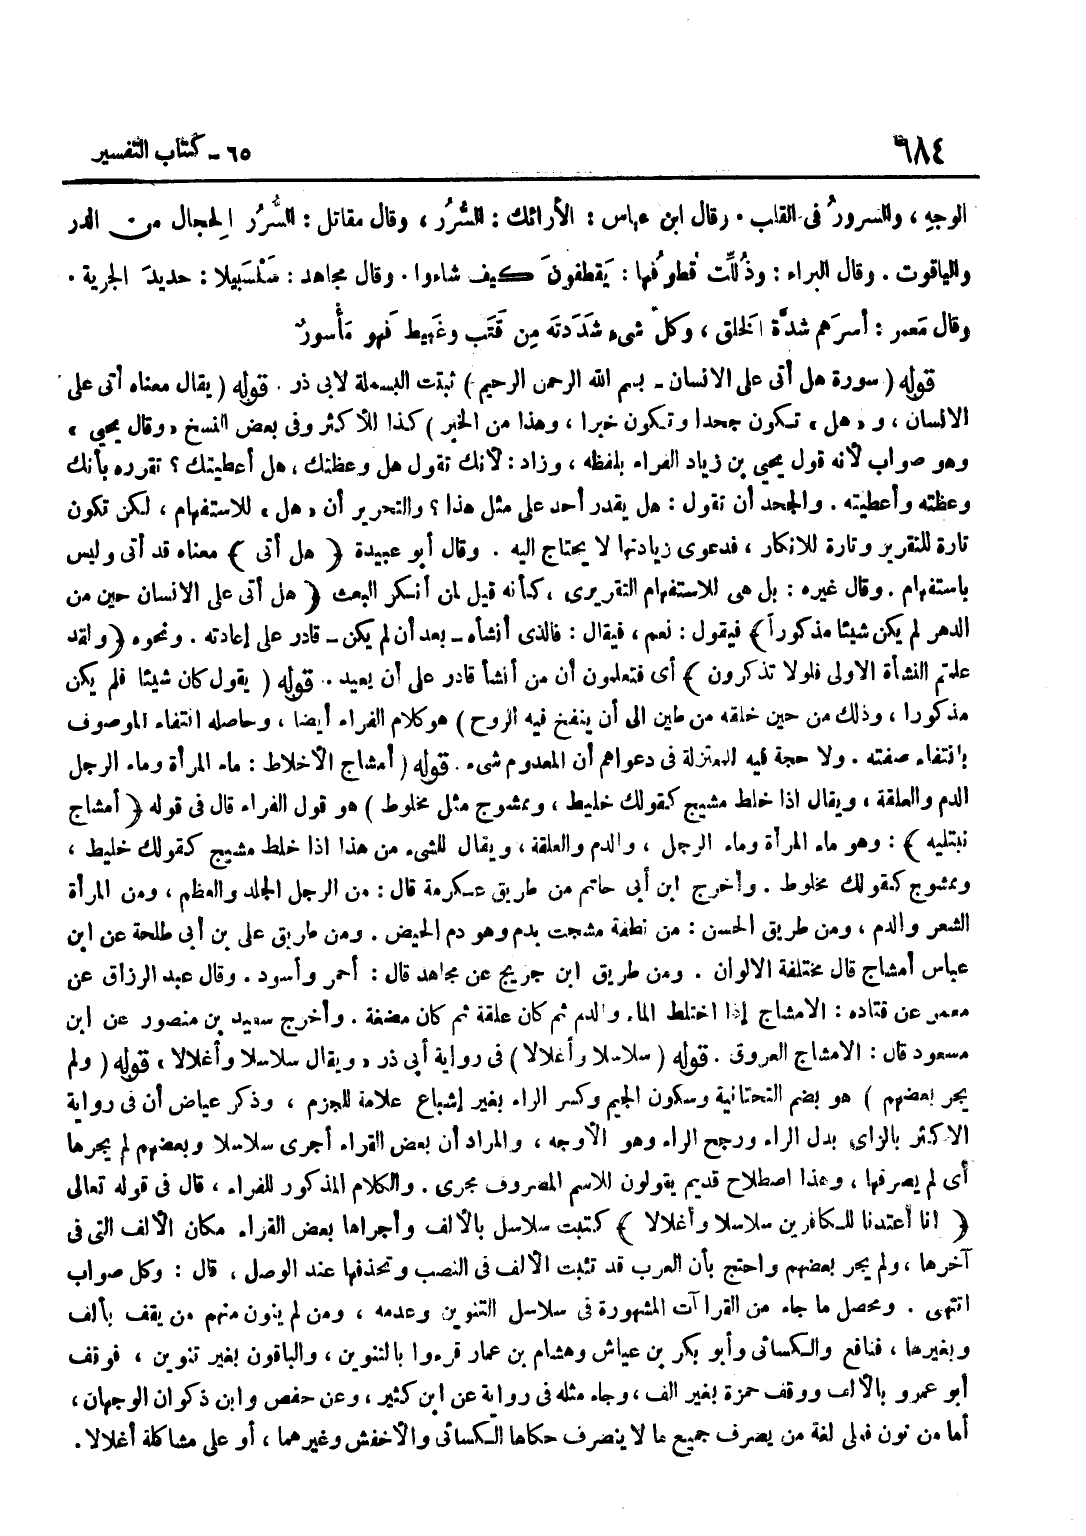 ٦٨٤
٦٥ - كتاب التفسير
الوجهِ ، والسرورُ فى القلب . وقال ابن عباس : الأرائك : السُّرُر ، وقال مقاتل : السُّرُر الِحجال من الدر
والياقوت . وقال البراء : وذُلِّلَت قطوفُها : يَقطفونَ كيف شاءوا . وقال مجاهد : سَلْسَبيلا : حديدَ الجرية .
وقال مَعمر : أسرَهم شدَّة الخَلق ، وكلّ شىء شَدَدتَه مِن قَتَب وغَبيط فهو مَأْسورٌ
قوله ( سورة هل أتى على الانسان - بسم الله الرحمن الرحيم ) ثبتت البسملة لابى ذر . قوله ( يقال معناه أتى على
الانسان ، و « هل » تكون جحدا وتكون خبرا ، وهذا من الخبر ) كذا للأكثر وفى بعض النسخ « وقال يحيي »
وهو صواب لأنه قول يحيي بن زياد الفراء بلفظه ، وزاد : لأنك تقول هل وعظتك ، هل أعطيتك ؟ تقرره بأنك
وعظته وأعطيته . والجحد أن تقول : هل يقدر أحد على مثل هذا ؟ والتحرير أن « هل » للاستفهام ، لكن تكون
تارة للتقرير وتارة للانكار ، فدعوى زيادتها لا يحتاج اليه . وقال أبو عبيدة ﴿ هل أتى ﴾ معناه قد أتى وليس
باستفهام . وقال غيره : بل هى للاستفهام التقريرى ، كأنه قيل لمن أنكر البعث ﴿ هل أتى على الانسان حين من
الدهر لم يكن شيئا مذكوراً ﴾ فيقول : نعم ، فيقال : فالذى أنشأه - بعد أن لم يكن - قادر على إعادته . ونحوه ﴿ ولقد
علمتم النشأة الاولى فلولا تذكرون ﴾ أى فتعلمون أن من أنشأ قادر على أن يعيد . قوله ( يقول كان شيئا فلم يكن
مذكورا ، وذلك من حين خلقه من طين الى أن ينفخ فيه الروح ) هو كلام الفراء أيضا ، وحاصله انتفاء الموصوف
بانتفاء صفته . ولا حجة فيه للمعتزلة فى دعواهم أن المعدوم شىء . قوله ( أمشاج الأخلاط : ماء المرأة وماء الرجل
الدم والعلقة ، ويقال اذا خلط مشيج كقولك خليط ، وممشوج مثل مخلوط ) هو قول الفراء قال فى قوله ﴿ أمشاج
نبتليه ﴾ : وهو ماء المرأة وماء الرجل ، والدم والعلقة ، ويقال للشىء من هذا اذا خلط مشيج كقولك خليط ،
وممشوج كقولك مخلوط . وأخرج ابن أبى حاتم من طريق عكرمة قال : من الرجل الجلد والعظم ، ومن المرأة
الشعر والدم ، ومن طريق الحسن : من نطفة مشجت بدم وهو دم الحيض . ومن طريق على بن أبى طلحة عن ابن
عباس أمشاج قال مختلفة الالوان . ومن طريق ابن جريج عن مجاهد قال : أحمر وأسود . وقال عبد الرزاق عن
معمر عن قتاده : الامشاج إذا اختلط الماء والدم ثم كان علقة ثم كان مضغة . وأخرج سعيد بن منصور عن ابن
مسعود قال : الامشاج العروق . قوله ( سلاسلا وأغلالا ) فى رواية أبى ذر « ويقال سلاسلا وأغلالا » قوله ( ولم
يجر بعضهم ) هو بضم التحتانية وسكون الجيم وكسر الراء بغير إشباع علامة للجزم ، وذكر عياض أن فى رواية
الاكثر بالزاي بدل الراء ورجح الراء وهو الأوجه ، والمراد أن بعض القراء أجرى سلاسلا وبعضهم لم يجرها
أى لم يصرفها ، وهذا اصطلاح قديم يقولون للاسم المصروف مجرى . والكلام المذكور للفراء ، قال فى قوله تعالى
﴿ انا أعتدنا للكافرين سلاسلا وأغلالا ﴾ كتبت سلاسل بالألف وأجراها بعض القراء مكان الألف التى فى
آخرها ، ولم يجر بعضهم واحتج بأن العرب قد تثبت الألف فى النصب وتحذفها عند الوصل ، قال : وكل صواب
انتهى . ومحصل ما جاء من القراآت المشهورة فى سلاسل التنوين وعدمه ، ومن لم ينون منهم من يقف بألف
وبغيرها ، فنافع والكسائى وأبو بكر بن عياش وهشام بن عمار قرءوا بالتنوين ، والباقون بغير تنوين ، فوقف
أبو عمرو بالألف ووقف حمزة بغير الف ، وجاء مثله فى رواية عن ابن كثير ، وعن حفص وابن ذكوان الوجهان ،
أما من نون فعلى لغة من يصرف جميع ما لا ينصرف حكاها الكسائى والأخفش وغيرهما ، أو على مشاكلة أغلالا .